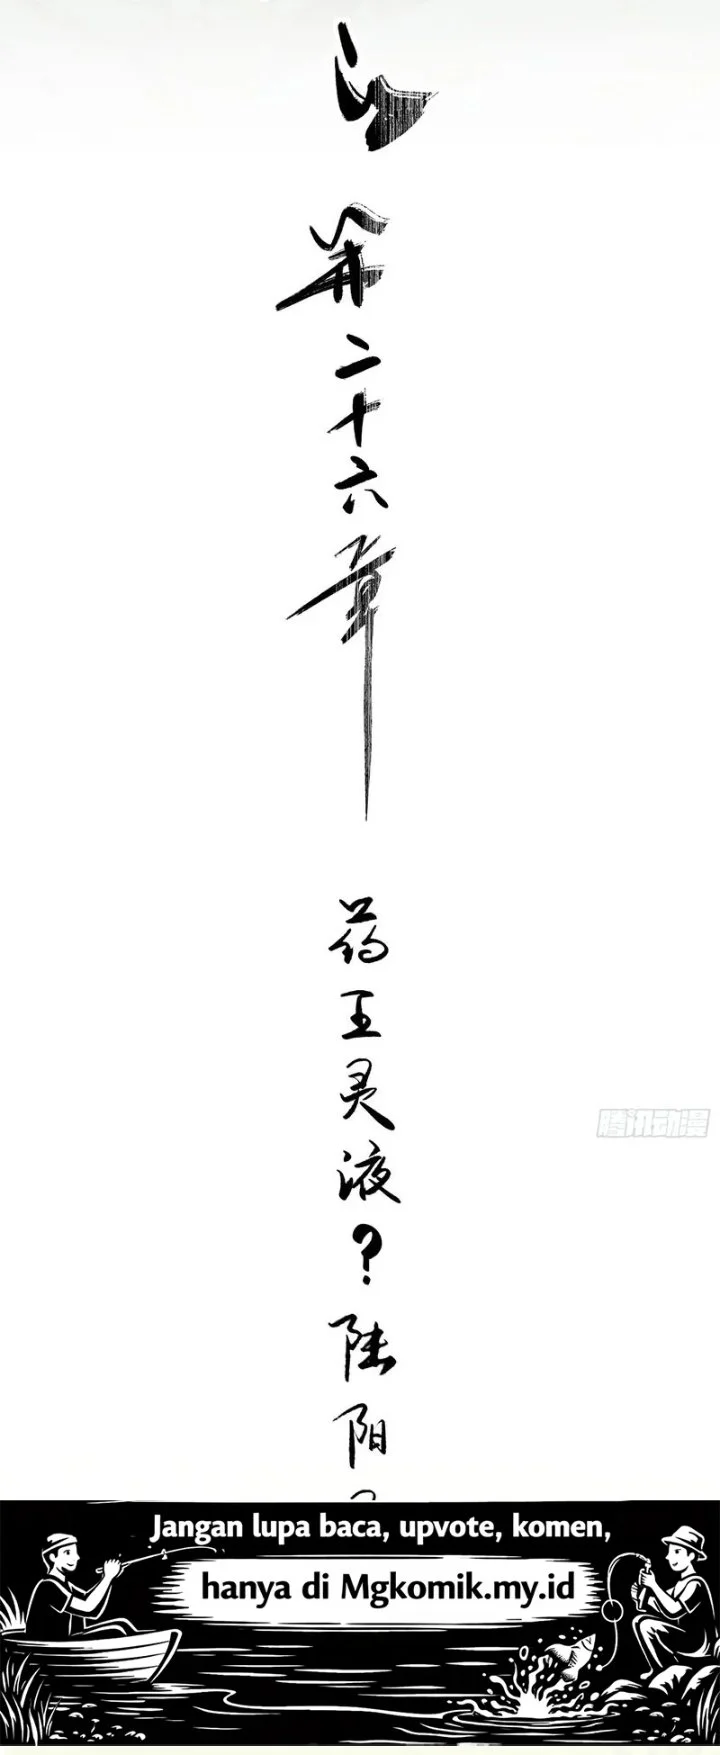 第二十六章
药王灵液?陆阳
腾讯动漫
Jangan lupa baca, upvote, komen,
hanya di Mgkomik.my.id